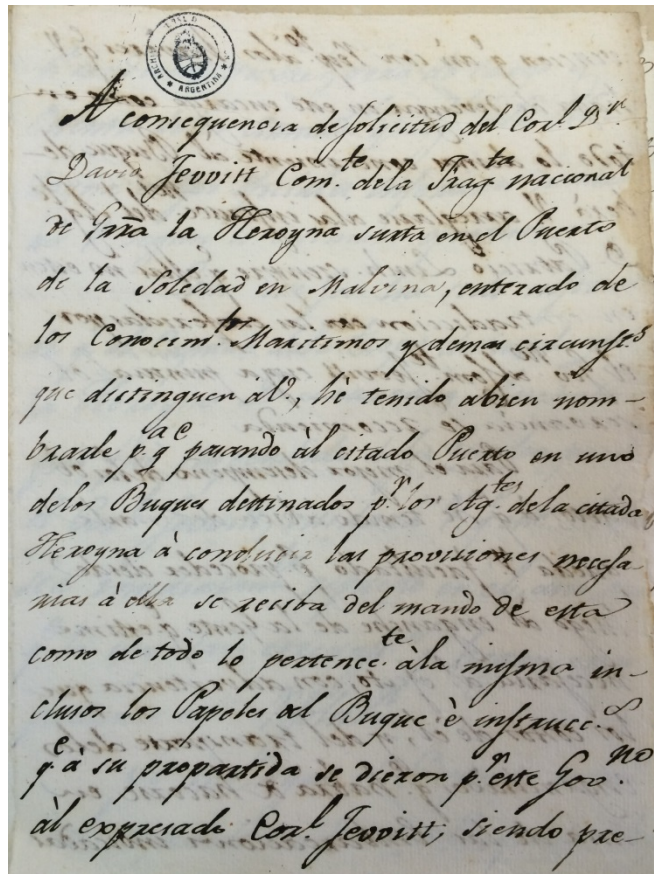 ARGENTINA
A consequencia de solicitud del Cor.l D.n
David Jevvitt Com.te dela Frag.ta nacional
de Grra la Heroyna surta en el Puerto
de la Soledad en Malvina, enterado de
los Conocim.tos Maritimos y demas circunst.s
que distinguen à V., hè tenido abien nom-
brarle p.a q.e pasando àl citado Puerto en uno
delos Buques destinados p.r los Ag.tes dela citada
Heroyna à conducir las provisiones necesa
rias à ella se reciba del mando de esta
como de todo lo pertenec.te àla misma in-
clusos los Papeles al Buque è instrucc.s
q.e à su propartida se dieron p.r este Gov.no
àl expresado Cor.l Jevvitt; siendo pre-